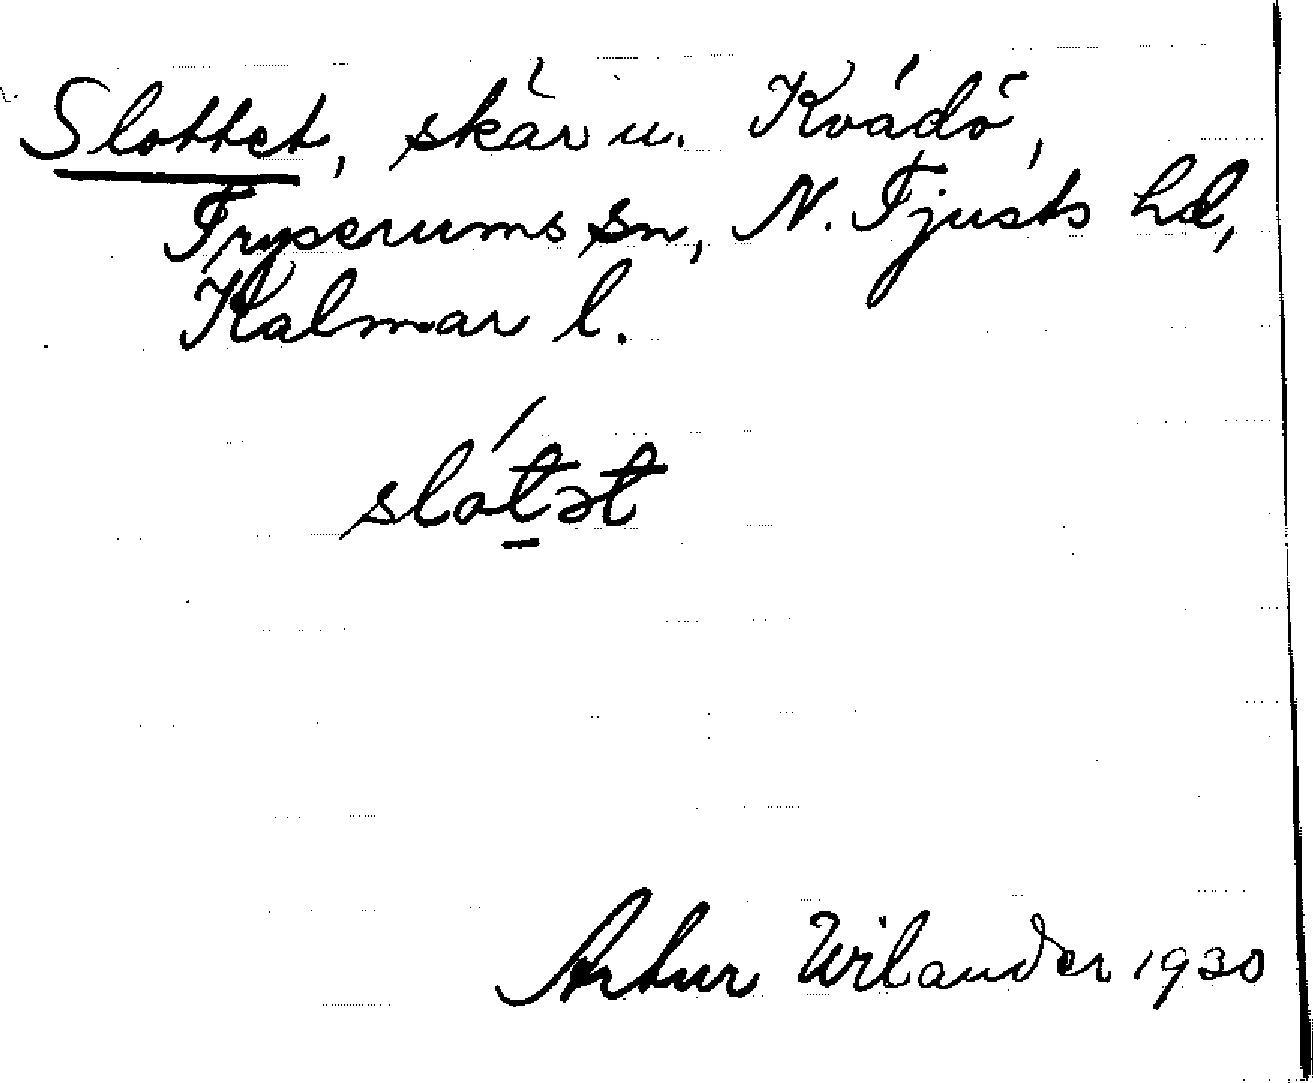 Slottet, skär u. Kvädö,
Tryserums sn, N. Tjusts hd,
Kalmar l.
slótət
Artur Wilander 1930